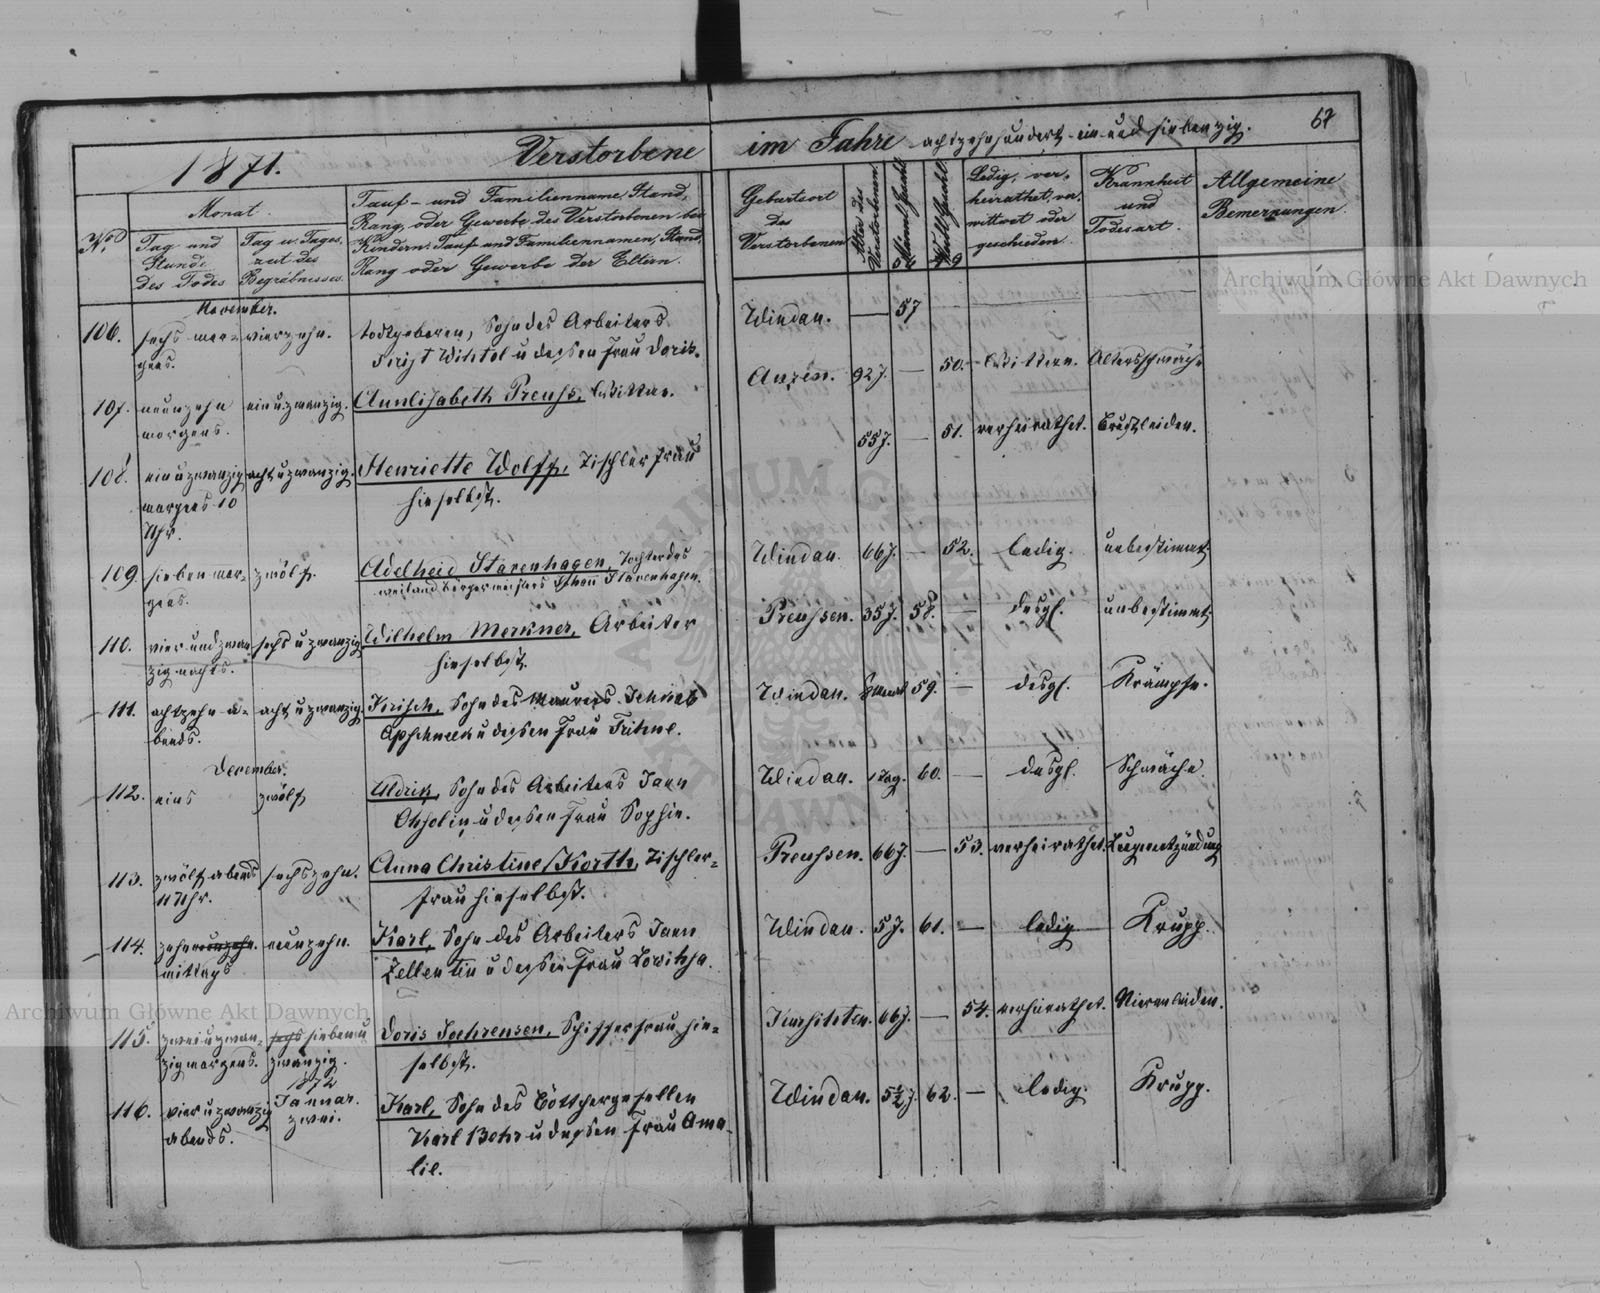 67
1871.
Verstorbene im Jahre achtzehnhundert-ein-und siebenzig.
No
Monat.
Tag und
Stunde
des Todes
Tag u. Tages-
zeit des
Begräbnisses.
Tauf- und Familienname, Stand,
Rang, oder Gewerbe des Verstorbenen bei
Kindern: Tauf und Familiennamen, Stand,
Rang oder Gewerbe der Eltern.
Geburtsort
des
Verstorbenen
Alter des
Verstorbenen
Männl. Geschl.
Weibl. Geschl.
56
49
Ledig, ver-
heirathet, ver-
wittwet oder
geschieden.
Krankheit
und
Todesart.
Allgemeine
Bemerkungen.
November.
106.
sechs mor-
gens.
vierzehn.
todtgeboren, Sohn des Arbeiters
Krist Wihtol u dessen Frau Dorih.
Windau.
57
107.
neunzehn
morgens.
einuzwanzig.
Annlisabeth Preuss,
92 J.
50.
Altersschwäche
108.
einuzwanzig
morgens 10
Uhr.
achtuzwanzig.
Henriette Wolff, Tischlerfrau
hieselbst.
55 J.
51.
verheirathet.
Brustleiden.
109.
sieben mor-
gens.
zwölf.
Adelheid Stavenhagen, Tochter des
weiland Bürgermeisters Johann Stavenhagen.
Windau.
66 J.
52.
ledig.
unbestimmt.
110.
vier und zwan
zig nachts.
sechs u zwanzig
Wilhelm Merkner, Arbeiter
hieselbst.
Preussen.
35 J.
58.
desgl.
unbestimmt
111.
achtzehn a-
bends.
acht u zwanzig.
Krisch, Sohn des Maurers Jehkab
Apschneek u dessen Frau Trihne.
Windau.
59.
desgl.
Krämpfe.
December.
112.
eins
zwölf
Uldrik, Sohn des Arbeiters Jann
Ohsolin u dessen Frau Sophie.
Windau.
1 Tag.
60.
desgl.
Schwäche.
113.
zwölf abends
11 Uhr.
sechszehn.
Anna Christine Korth, Tischler-
frau hieselbst.
Preussen.
66 J.
53.
verheirathet.
Lungenentzündung
114.
zehn neunzehn.
mittags
neunzehn.
Karl, Sohn des Arbeiters Jann
Zellentin u dessen Frau Lowihsa.
Windau.
5 J.
61.
ledig
Krupp.
115.
zwei u zwan-
zig morgens.
sechs sieben u
zwanzig.
Doris Joehrensen, Schifferfrau hie-
selbst.
66 J.
54.
verheirathet.
Nierenleiden.
116.
vier u zwanzig
abends.
1872
Januar.
zwei.
Karl, Sohn des Böttchergesellen
Karl Behr u dessen Frau Ama-
lie.
Windau.
5½ J.
62.
ledig.
Krupp.
Archiwum Główne Akt Dawnych
Archiwum Główne Akt Dawnych